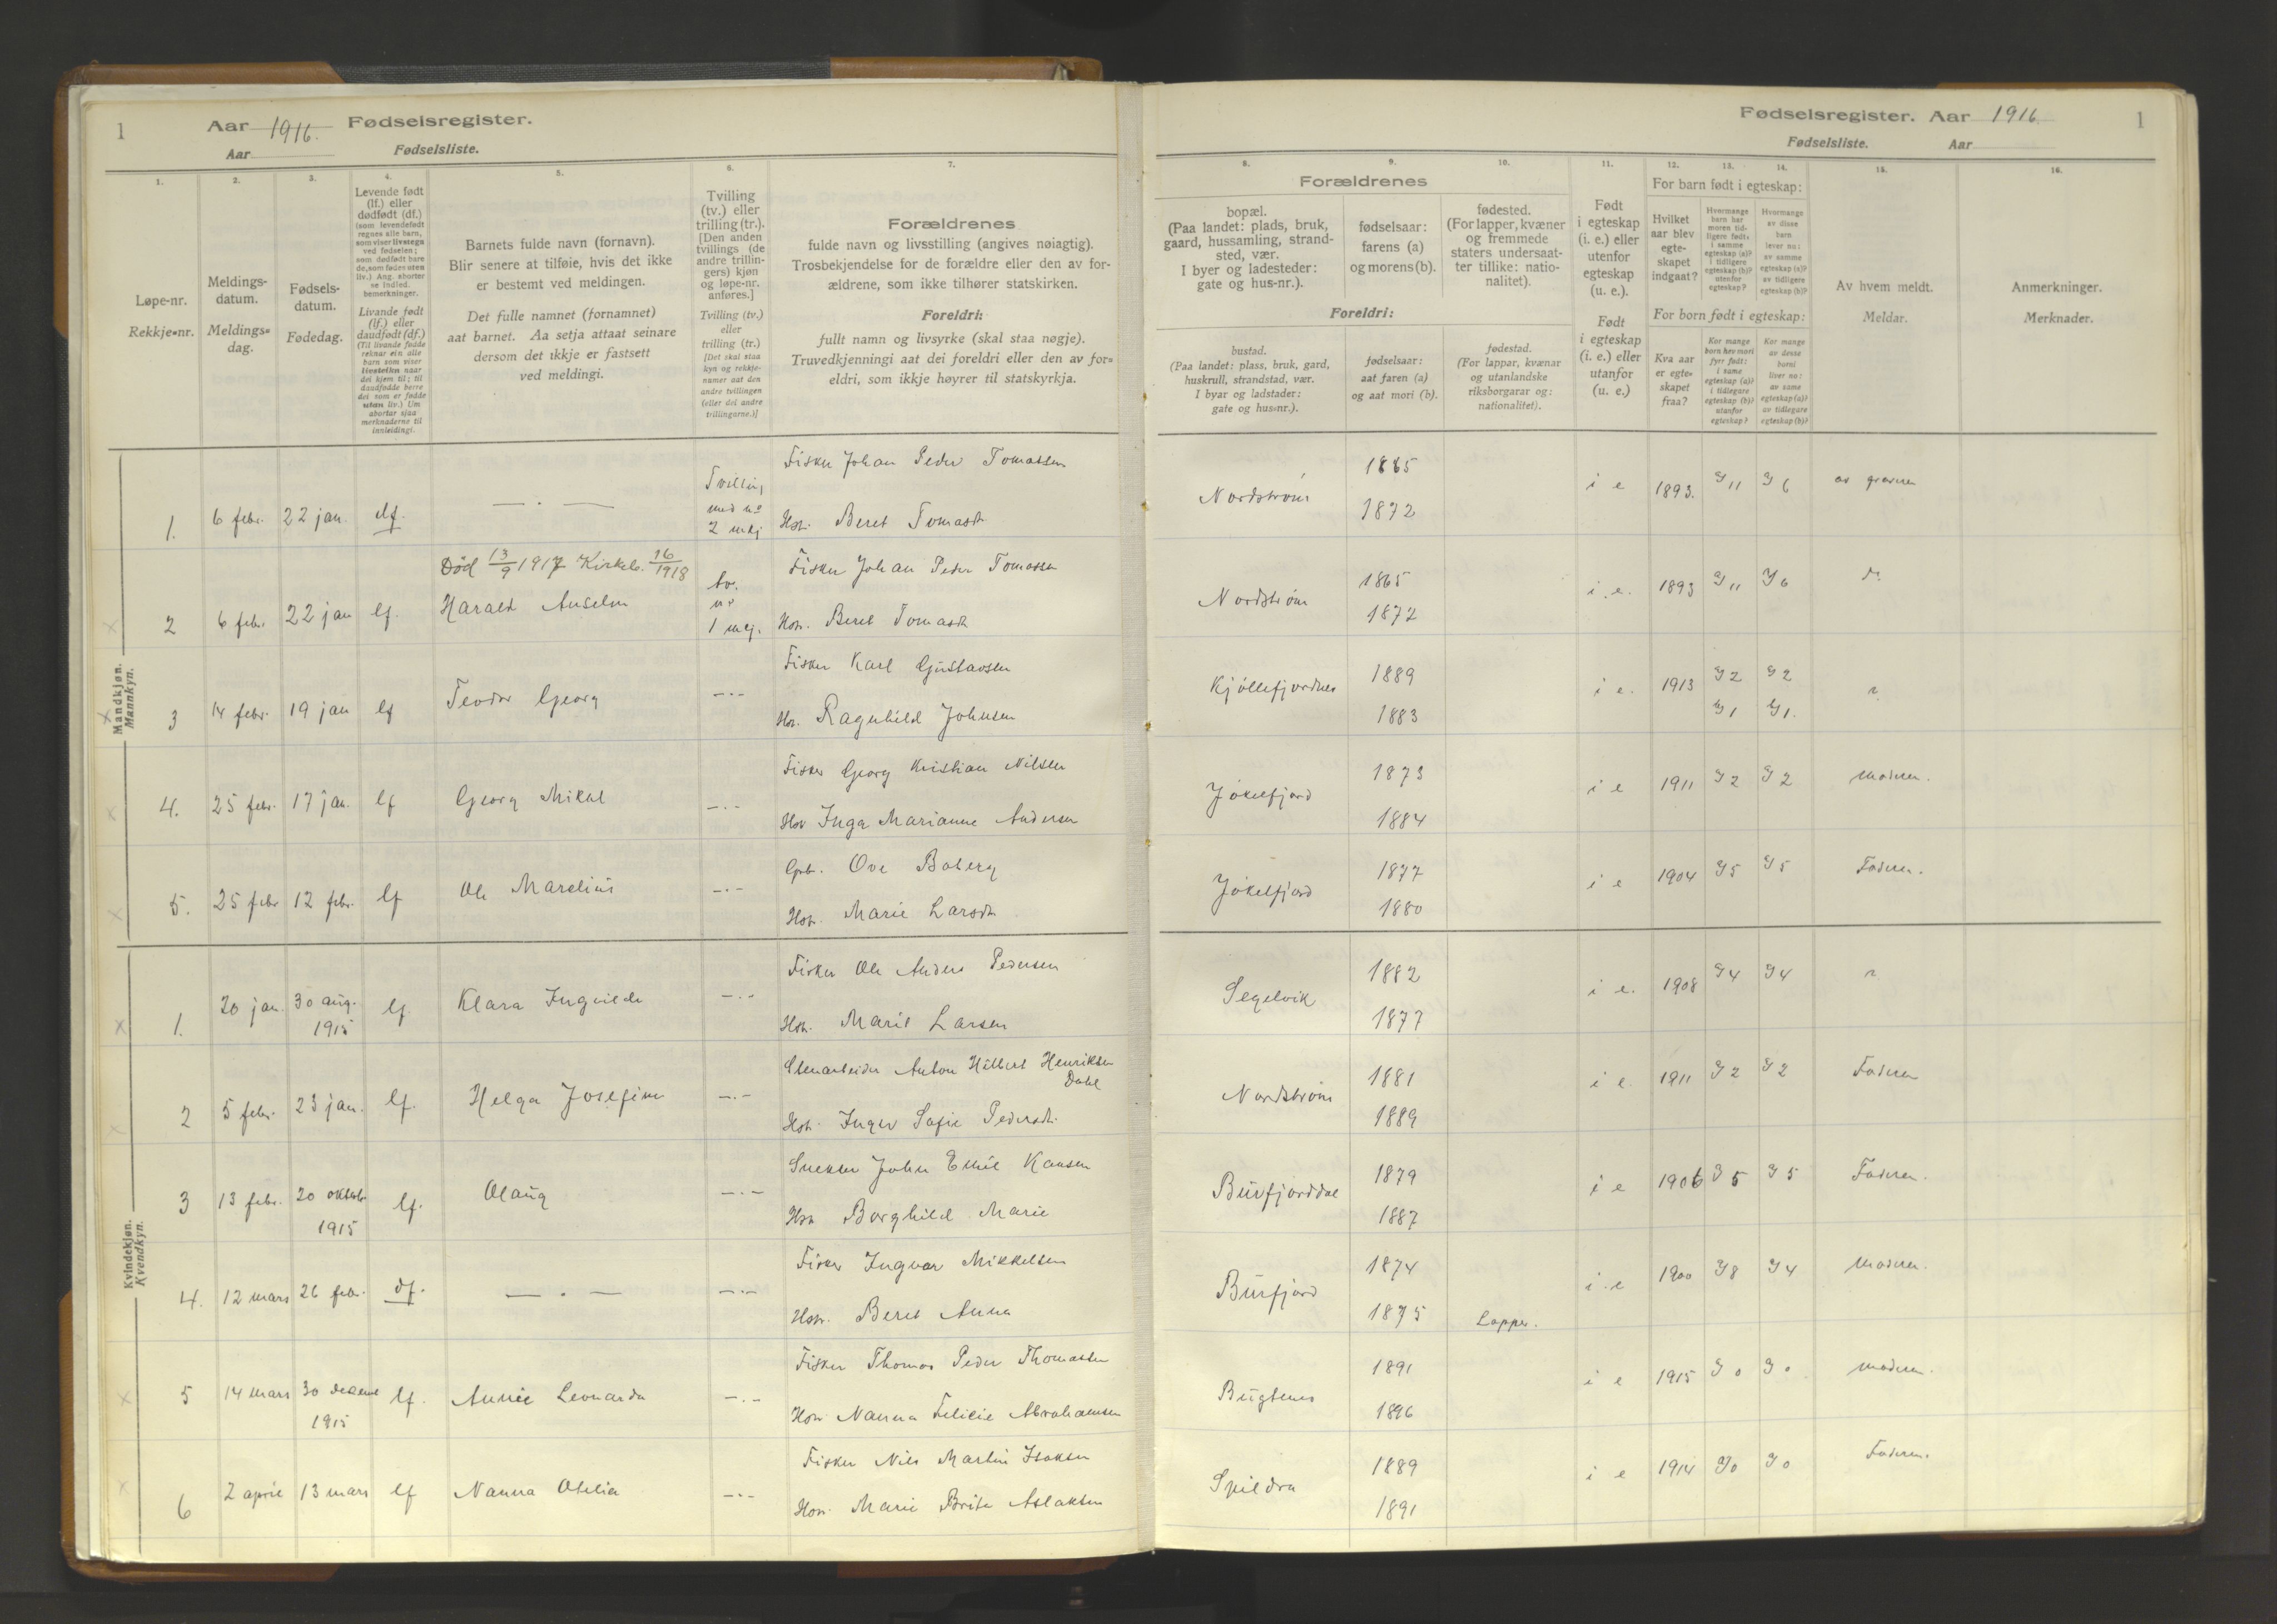 1
Aar 1916. Fødselsregister.
Aar Fødselsliste.
1. 2. 3. 4. 5. 6. 7.
Løpe-nr.
Rekkje=nr.
Meldings-
datum.
Meldings=
dag.
Fødsels-
datum.
Fødedag.
Levende født
(lf.) eller
dødfødt (df.)
(som levendefødt
regnes alle barn,
som viser livstegn
ved fødselen;
som dødfødt bare
de, som fødes uten
liv.) Ang. aborter
se indled.
bemerkninger.
Livande født
(lf.) eller
daudfødt (df.)
(Til livande fødde
reknar ein alle
barn som viser
livsteikn naar
dei kjem til; til
daudfødde berre
dei som er fødde
utan liv.) Um
abortar sjaa
merknaderne til
innleidingi.
Barnets fulde navn (fornavn).
Blir senere at tilføie, hvis det ikke
er bestemt ved meldingen.
Det fulle namnet (fornamnet)
aat barnet. Aa setja attaat seinare
dersom det ikkje er fastsett
ved meldingi.
Tvilling
(tv.) eller
trilling (tr.).
[Den anden
tvillings (de
andre trillin-
gers) kjøn
og løpe-nr.
anføres.]
Tvilling (tv.)
eller
trilling (tr.)
[Det skal staa
kyn og rekkje-
numer aat den
andre tvillingen
(eller dei andre
trillingarne.)]
Forældrenes
fulde navn og livsstilling (angives nøiagtig).
Trosbekjendelse for de forældre eller den av for-
ældrene, som ikke tilhører statskirken.
Foreldri:
fullt namn og livsyrke (skal staa nøgje).
Truvedkjenningi aat dei foreldri eller den av for=
eldri, som ikkje høyrer til statskyrkja.
Mandkjøn.
Mannkyn.
1. 6 febr. 22 jan. df. — . — Tvilling
med no
2 mkj
Fisker Johan Peder Tomassen
Hstr. Beret Tomasd.
Død 13/9 1917 Kirkeb. 16/1918
2 6 febr. 22 jan lf. Harald Anselm tv.
no
1 mkj.
Fisker Johan Peder Tomassen
Hstr. Beret Tomasd.
3 14 febr. 19 jan lf Teodor Georg —.—
Fisker Karl Gustavsen
Hstr. Ragnhild Johnsen
4. 25 febr. 17 jan. lf Georg Mikal —.—
Fisker Georg Kristian Nilsen
Hstr Inga Marianne Andersen
5. 25 febr 12 febr. lf Ole Marelius —.—
Gbr. Ove Boberg
Hstr. Marie Larsd.
Kvindekjøn.
Kvendkyn.
1. 20 jan. 30 aug.
1915 lf. Klara Ingvilde —.—
Fisker Ole Anders Pedersen
Hstr. Marit Larsen
2 5 febr. 23 jan. lf. Helga Josefine —.—
Stenarbeider Anton Hilbert Henriksen
Dahl
Hstr. Inger Sofie Pedersd.
3 13 febr. 20 oktobr
1915 lf. Olaug —.—
Snekker John Emil Hansen
Hstr Borghild Marie
4. 12 mars 26 febr. df. — . — —.—
Fisker Ingvar Mikkelsen
Hstr. Beret Anna
5 14 mars 30 decemb
1915 lf. Annie Leonarda —.—
Fisker Thomas Peder Thomassen
Hstr. Nanna Felicie Abrahamsen
6 2 april 13 mars lf Nanna Otelia —.—
Fisker Nils Martin Isaksen
Hstr. Marie Brita Aslaksen
Fødselsregister. Aar 1916 1
Fødselsliste. Aar
8. 9. 10. 11. 12. 13. 14. 15. 16.
Forældrenes
bopæl.
(Paa landet: plads, bruk,
gaard, hussamling, strand-
sted, vær.
I byer og ladesteder:
gate og hus-nr.).
fødselsaar:
farens (a)
og morens (b).
fødested.
(For lapper, kvæner
og fremmede
staters undersaat-
ter tillike: natio-
nalitet).
Foreldri:
bustad.
(Paa landet: plass, bruk, gard,
huskrull, strandstad, vær.
I byar og ladstader:
gate og hus=nr.).
fødselsaar:
aat faren (a)
og aat mori (b).
fødestad.
(For lappar, kvænar
og utanlandske
riksborgarar og:
nationalitet).
Født
i egteskap
(i. e.) eller
utenfor
egteskap
(u. e.).
Født
i egteskap
(i. e.) eller
utanfor
(u. e.)
For barn født i egteskap:
Hvilket
aar blev
egte-
skapet
indgaat?
Hvormange
barn har
moren tid-
ligere født:
i samme
egteskap (a)?
i tidligere
egteskap (b)?
utenfor
egteskap?
Hvormange
av disse
barn
lever nu:
av samme
egteskap (a)?
av tidligere
egteskap (b)?
For born født i egteskap:
Kva aar
er egte=
skapet
fraa?
Kor mange
born hev mori
fyrr født:
i same
egteskap (a)?
i tidlegare
egteskap (b)?
utanfor
egteskap?
Kor mange
av desse
borni
liver no:
av same
egteskap (a)?
av tidlegare
egteskap (b)?
Av hvem meldt.
Meldar.
Anmerkninger.
Merknader.
Nordstrøm 1865 i e 1893. 11 6
1872
Nordstrøm 1865 i.e. 1893 11 6 do
1872
Kjöllefjordnes 1889 i e. 1913 2 2
1883 1 1.
Jökelfjord 1873 i e 1911 2 2 Moderen.
1884
Jökelfjord 1877 i e 1904 5 5 Faderen.
1880
Segelvik 1882 i e. 1908 4 4
1877
Nordstrøm 1881 i e. 1911 2 2 Faderen
1889
Burfjorddal 1879 i e 1906 5 5 Faderen.
1887
Burfjord 1874 i.e 1900 8 4 Moderen.
1875 Lapper.
Bugtenes 1891 i e 1915 0 0 moderen.
1896
Spildra 1889 i e 1914 0 0 Faderen.
1891